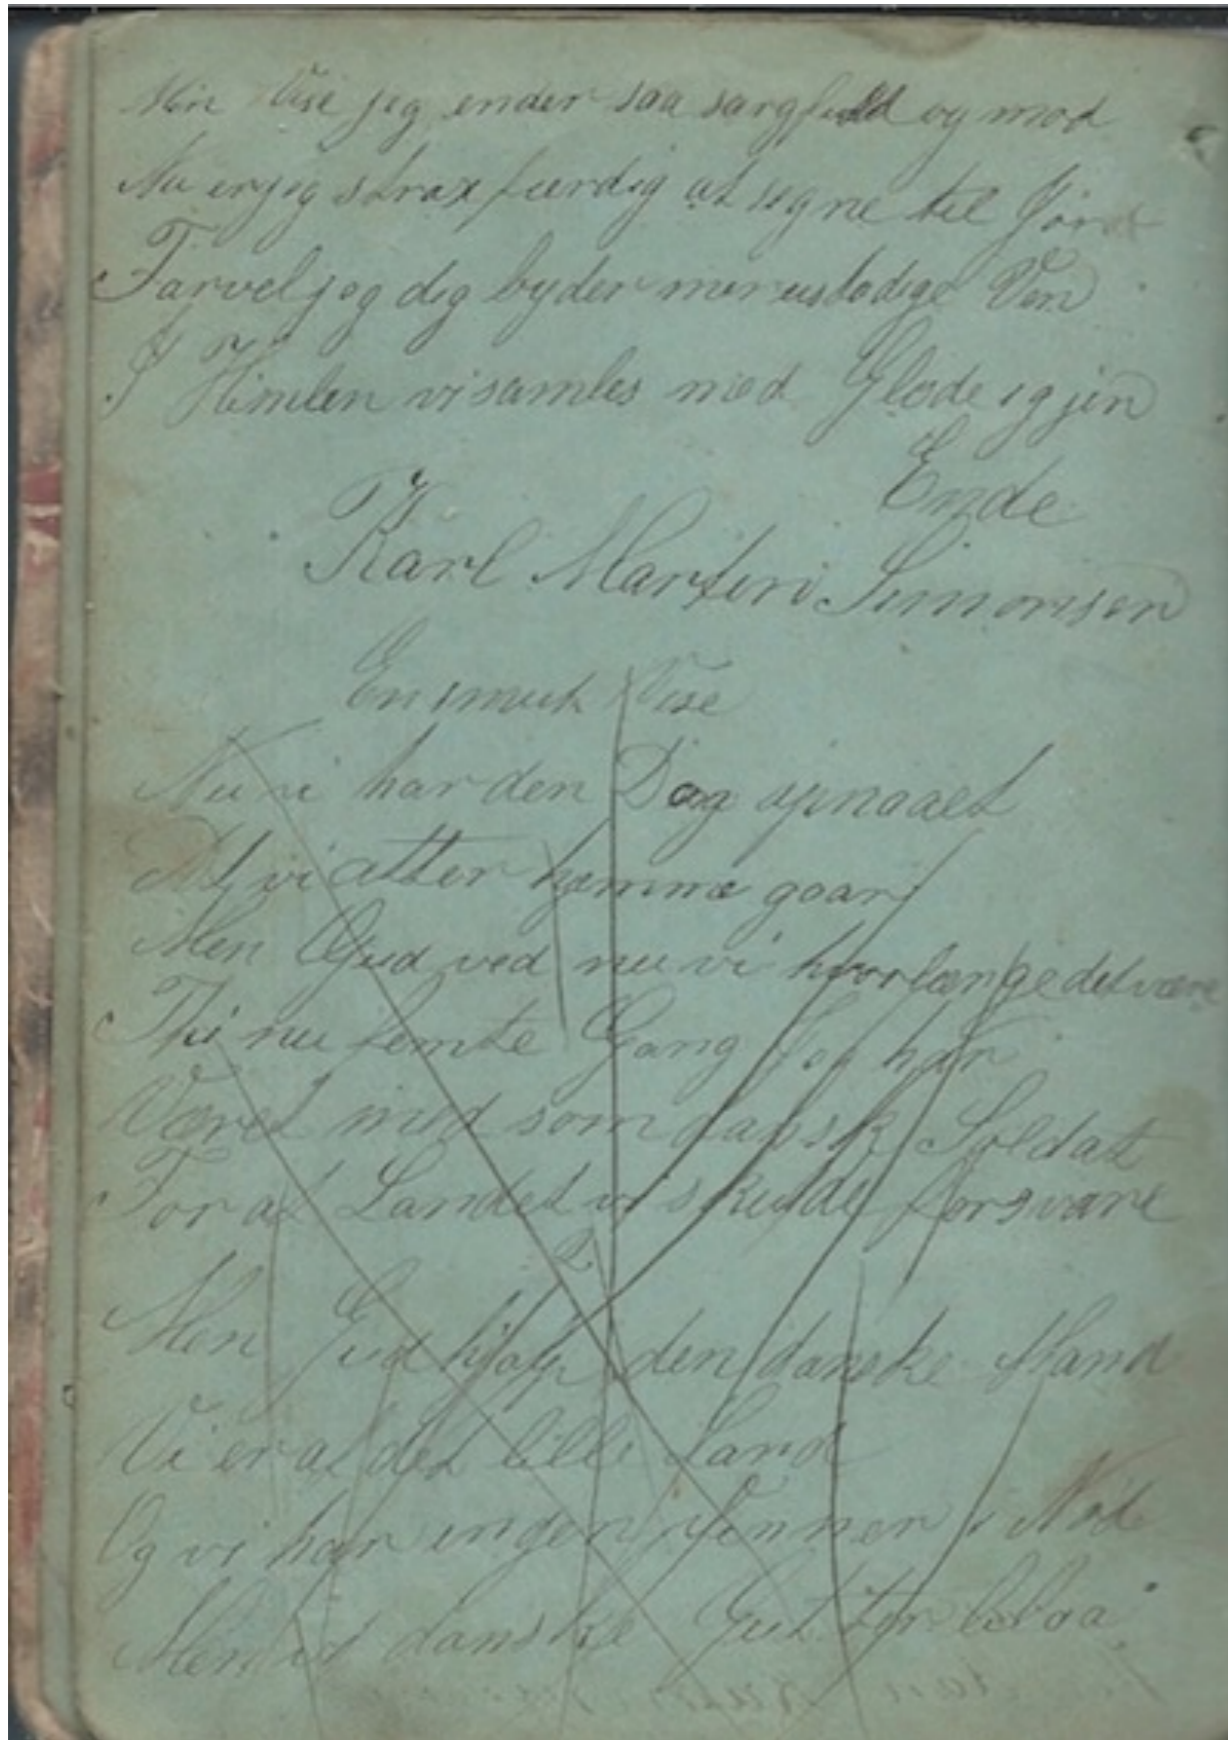 Min Vise jeg ender saa sargfuld og mod
Nu er jeg strax færdig at segne til Jord
Farvel jeg dig byder min Ven
I Himlen vi samles med Glæde igjen
Ende
Karl Martin Simonsen
En smuk Vise
Nu vi har den Dag opnaaet
At vi atter hjemme gaar
Men Gud ved nu vi hvorlænge det være
Thi nu femte Gang jeg har
Været med som dansk Soldat
For at Landet vi skulde forsvare
2
Men Gud hjalp den danske Mand
Vi er af det lille Land
Og vi har ingen Venner i Nød
Men danske Gut